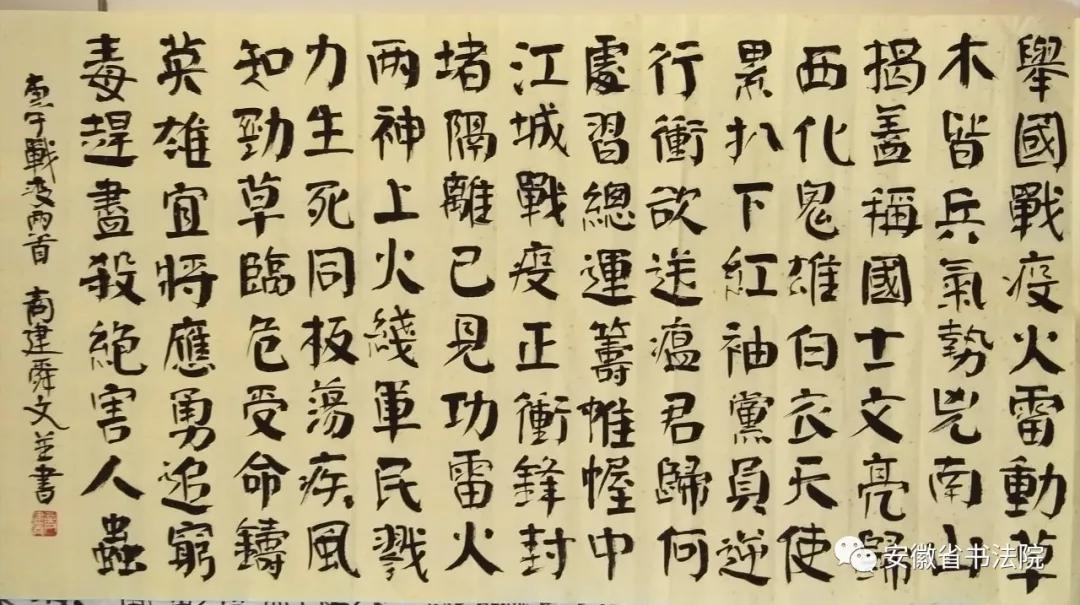 舉國戰疫火雷動草
木皆兵氣勢兇南山
揭蓋稱國士文亮歸
西化鬼雄白衣天使
累扒下紅袖黨員逆
行衝欲送瘟君歸何
處習總運籌帷幄中
江城戰疫正衝鋒封
堵隔離已見功雷火
兩神上火綫軍民戮
力生死同板蕩疾風
知勁草臨危受命鑄
英雄宜將應勇追窮
毒趕盡殺絕害人蟲
庚子戰疫兩首 商建舜文並書
安徽省书法院